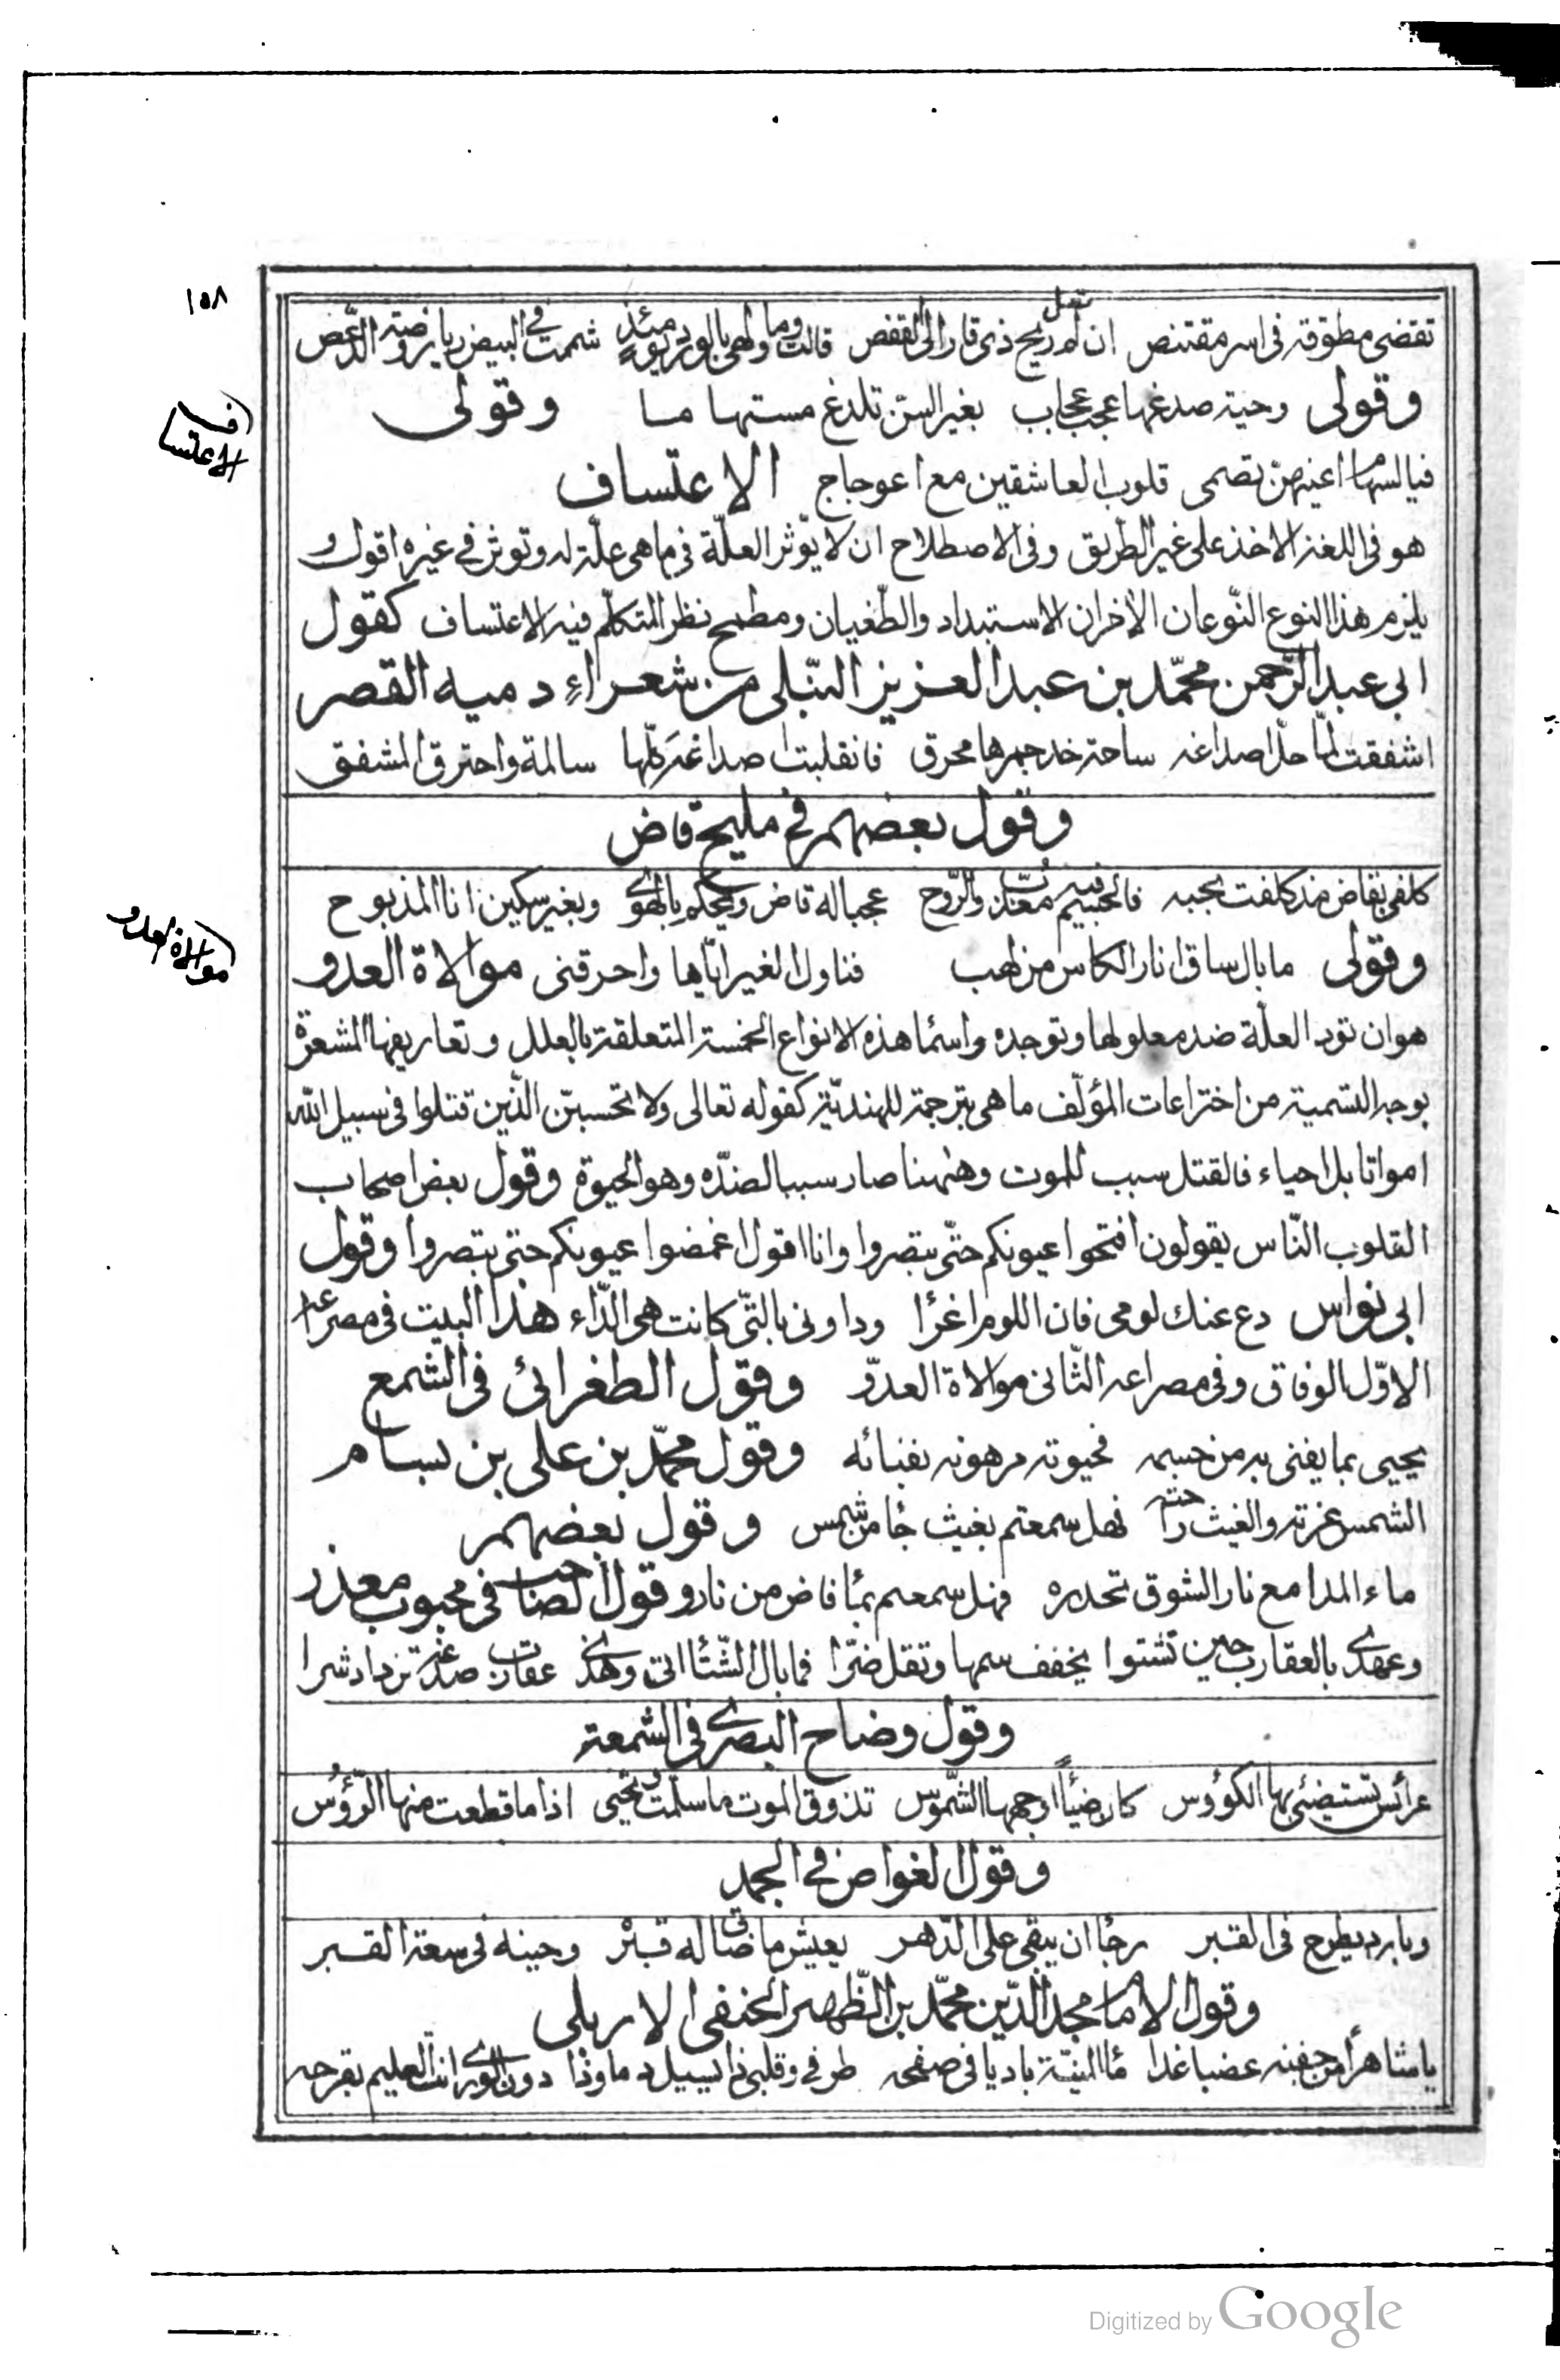 ١٥٨
تقضى مطوقة فى اسر مقتنص ان لم تعل ريح ذى قار الى القفص قالت وما ولهى بالورد يومئذ شممت فى البيض ريا روضة الدعص
وقولى وحية صدغها عجب عجاب بغير السن تلدغ مستهاما وقولى
فيا لسهام اعينهن تصمى قلوب العاشقين مع اعوجاج الاعتساف
هو فى اللغة الاخذ على غير الطريق وفى الاصطلاح ان لا يؤثر العلّة فى ما هى علّة له وتوثر فى غيره اقول و
يلزم هذا النوع النّوعان الاخران الاستبداد والطّغيان ومطمح نظر المتكلّم فيه الاعتساف كقول
ابى عبد الرّحمن محمّد بن عبد العزيز النّيلى من شعراء دمية القصر
اشفقت لمّا حلّ اصداغه ساحة خد جمرها محرق فانقلبت اصداغه كلّها سالمة واحترق المشفق
وقول بعضهم فى مليح قاض
كلفى بقاض مذ كلفت بحبه فالجسم فيه معذب والرّوح عجبا له قاض ويحكم بالهوى وبغير سكين انا المذبوح
وقولى ما بال ساق انار الكاس من لهب فناول الغير ايّاها واحرقنى موالاة العدو
هو ان تود العلّة ضد معلولها وتوجده واسما هذه الانواع الخمسة المتعلقة بالعلل وتعاريفها المشعرة
بوجه التسمية من اختراعات المؤلّف ما هى بترجمة للهنديّة كقوله تعالى ولا تحسبنّ الّذين قتلوا فى سبيل الله
امواتا بل احياء فالقتل سبب للموت وههنا صار سببا لضدّه وهو الحيوة وقول بعض اصحاب
القلوب النّاس يقولون افتحوا عيونكم حتّى تبصروا وانا اقول اغمضوا عيونكم حتى تبصروا وقول
ابى نواس دع عنك لومى فان اللوم اغرا وداونى بالتّى كانت هى الدّاء هذا البيت فى مصراعه
الاوّل الوفاق وفى مصراعه الثّانى موالاة العدوّ وقول الطغرائى فى الشمع
يحيى بما يفنى به من جسمه فحيوته مرهونة بفنائه وقول محمّد بن على بن بسام
الشمس غرته والغيث راحته فهل سمعتم بغيث جا من شمس وقول بعضهم
ماء المدامع نار الشوق تحدره فهل سمعتم بما فاض من نار وقول الصاحب فى محبوب معذر
وعهدى بالعقارب حين تشتوا يخفف سمها وتقل ضرّا فما بال الشّتا اتى وهذى عقارب صدغه تزداد شرا
وقول وضاح البصرى فى الشمعة
عرائس تستضئى بها الكؤوس كان ضيأ اوجهها الشّموس تذوق الموت ما سلمت وتحيى اذا ما قطعت منها الرّؤُس
وقول الغواص فى الجمد
وبارد يطرح فى القبر رجا ان يبقى على الدّهر يعيش ما ضاق له قبر وحينه فى سعة القبر
وقول الامام مجد الدّين محمّد بن الظّهير الحنفى الاربلى
يا شاهرا من جفنه عضبا غدا ما المنيّة باديا فى صفحه طرفى وقلبى ذا يسيل دما وذا دون الورى انت العليم بقرحه
الاعتساف
موالاة العدو
Digitized by Google